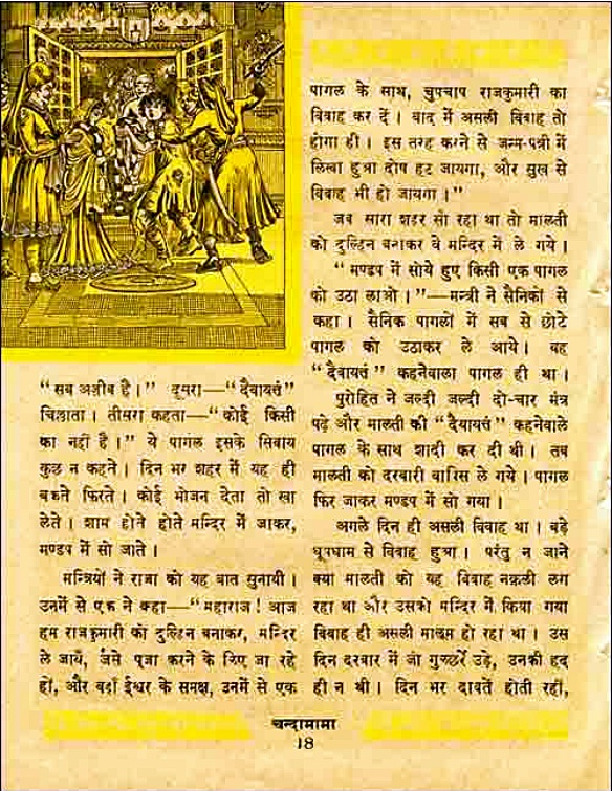 “सब अजीब है।” दूसरा—“दैवायत्तं”
चिल्लाता। तीसरा कहता—“कोई किसी
का नहीं है।” ये पागल इसके सिवाय
कुछ न कहते। दिन भर शहर में यह ही
बकते फिरते। कोई भोजन देता तो खा
लेते। शाम होते होते मन्दिर में जाकर,
मण्डप में सो जाते।
मन्त्रियों ने राजा को यह बात सुनायी।
उनमें से एक ने कहा—“महाराज! आज
हम राजकुमारी को दुल्हिन बनाकर, मन्दिर
ले जायें, जैसे पूजा करने के लिए जा रहे
हों, और वहाँ ईश्वर के समक्ष, उनमें से एक
पागल के साथ, चुपचाप राजकुमारी का
विवाह कर दें। बाद में असली विवाह तो
होगा ही। इस तरह करने से जन्म-पत्री में
लिखा हुआ दोष हट जायगा, और सुख से
विवाह भी हो जायगा।”
जब सारा शहर सो रहा था तो मालती
को दुल्हिन बनाकर वे मन्दिर में ले गये।
“मण्डप में सोये हुए किसी एक पागल
को उठा लाओ।”—मन्त्री ने सैनिकों से
कहा। सैनिक पागलों में सब से छोटे
पागल को उठाकर ले आये। वह
“दैवायत्तं” कहनेवाला पागल ही था।
पुरोहित ने जल्दी जल्दी दो-चार मंत्र
पढ़े और मालती की “दैवायत्तं” कहनेवाले
पागल के साथ शादी कर दी थी। तब
मालती को दरबारी वापिस ले गये। पागल
फिर जाकर मण्डप में सो गया।
अगले दिन ही असली विवाह था। बड़े
धूमधाम से विवाह हुआ। परंतु न जाने
क्यों मालती को यह विवाह नक़ली लग
रहा था और उसको मन्दिर में किया गया
विवाह ही असली मालूम हो रहा था। उस
दिन दरबार में जो गुच्छर्रे उड़े, उनकी हद
ही न थी। दिन भर दावतें होती रहीं,
चन्दामामा
18